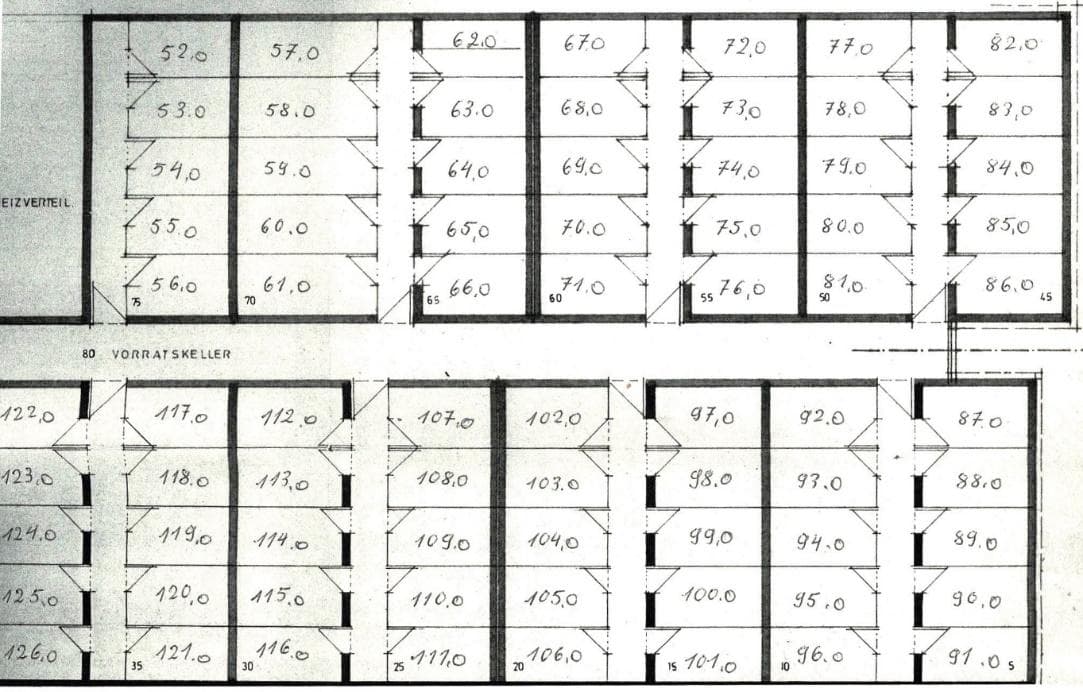 52,0 57,0 62.0 67.0 72,0 77,0 82,0
53.0 58.0 63.0 68,0 73,0 78,0 83,0
54,0 59.0 64,0 69,0 74,0 79.0 84.0
EIZVERTEIL.
55.0 60.0 65,0 70.0 75,0 80.0 85,0
56,0 61.0 66,0 71.0 76,0 81,0 86.0
75 70 65 60 55 50 45
80 VORRATSKELLER
122,0 117,0 112.0 107,0 102,0 97,0 92.0 87.0
123,0 118.0 113,0 108,0 103.0 98.0 93.0 88.0
124.0 119,0 114.0 109.0 104,0 99,0 94.0 89.0
125,0 120,0 115,0 110.0 105,0 100.0 95.0 90.0
126,0 121.0 116.0 111.0 106,0 101,0 96.0 91.0
35 30 25 20 15 10 5